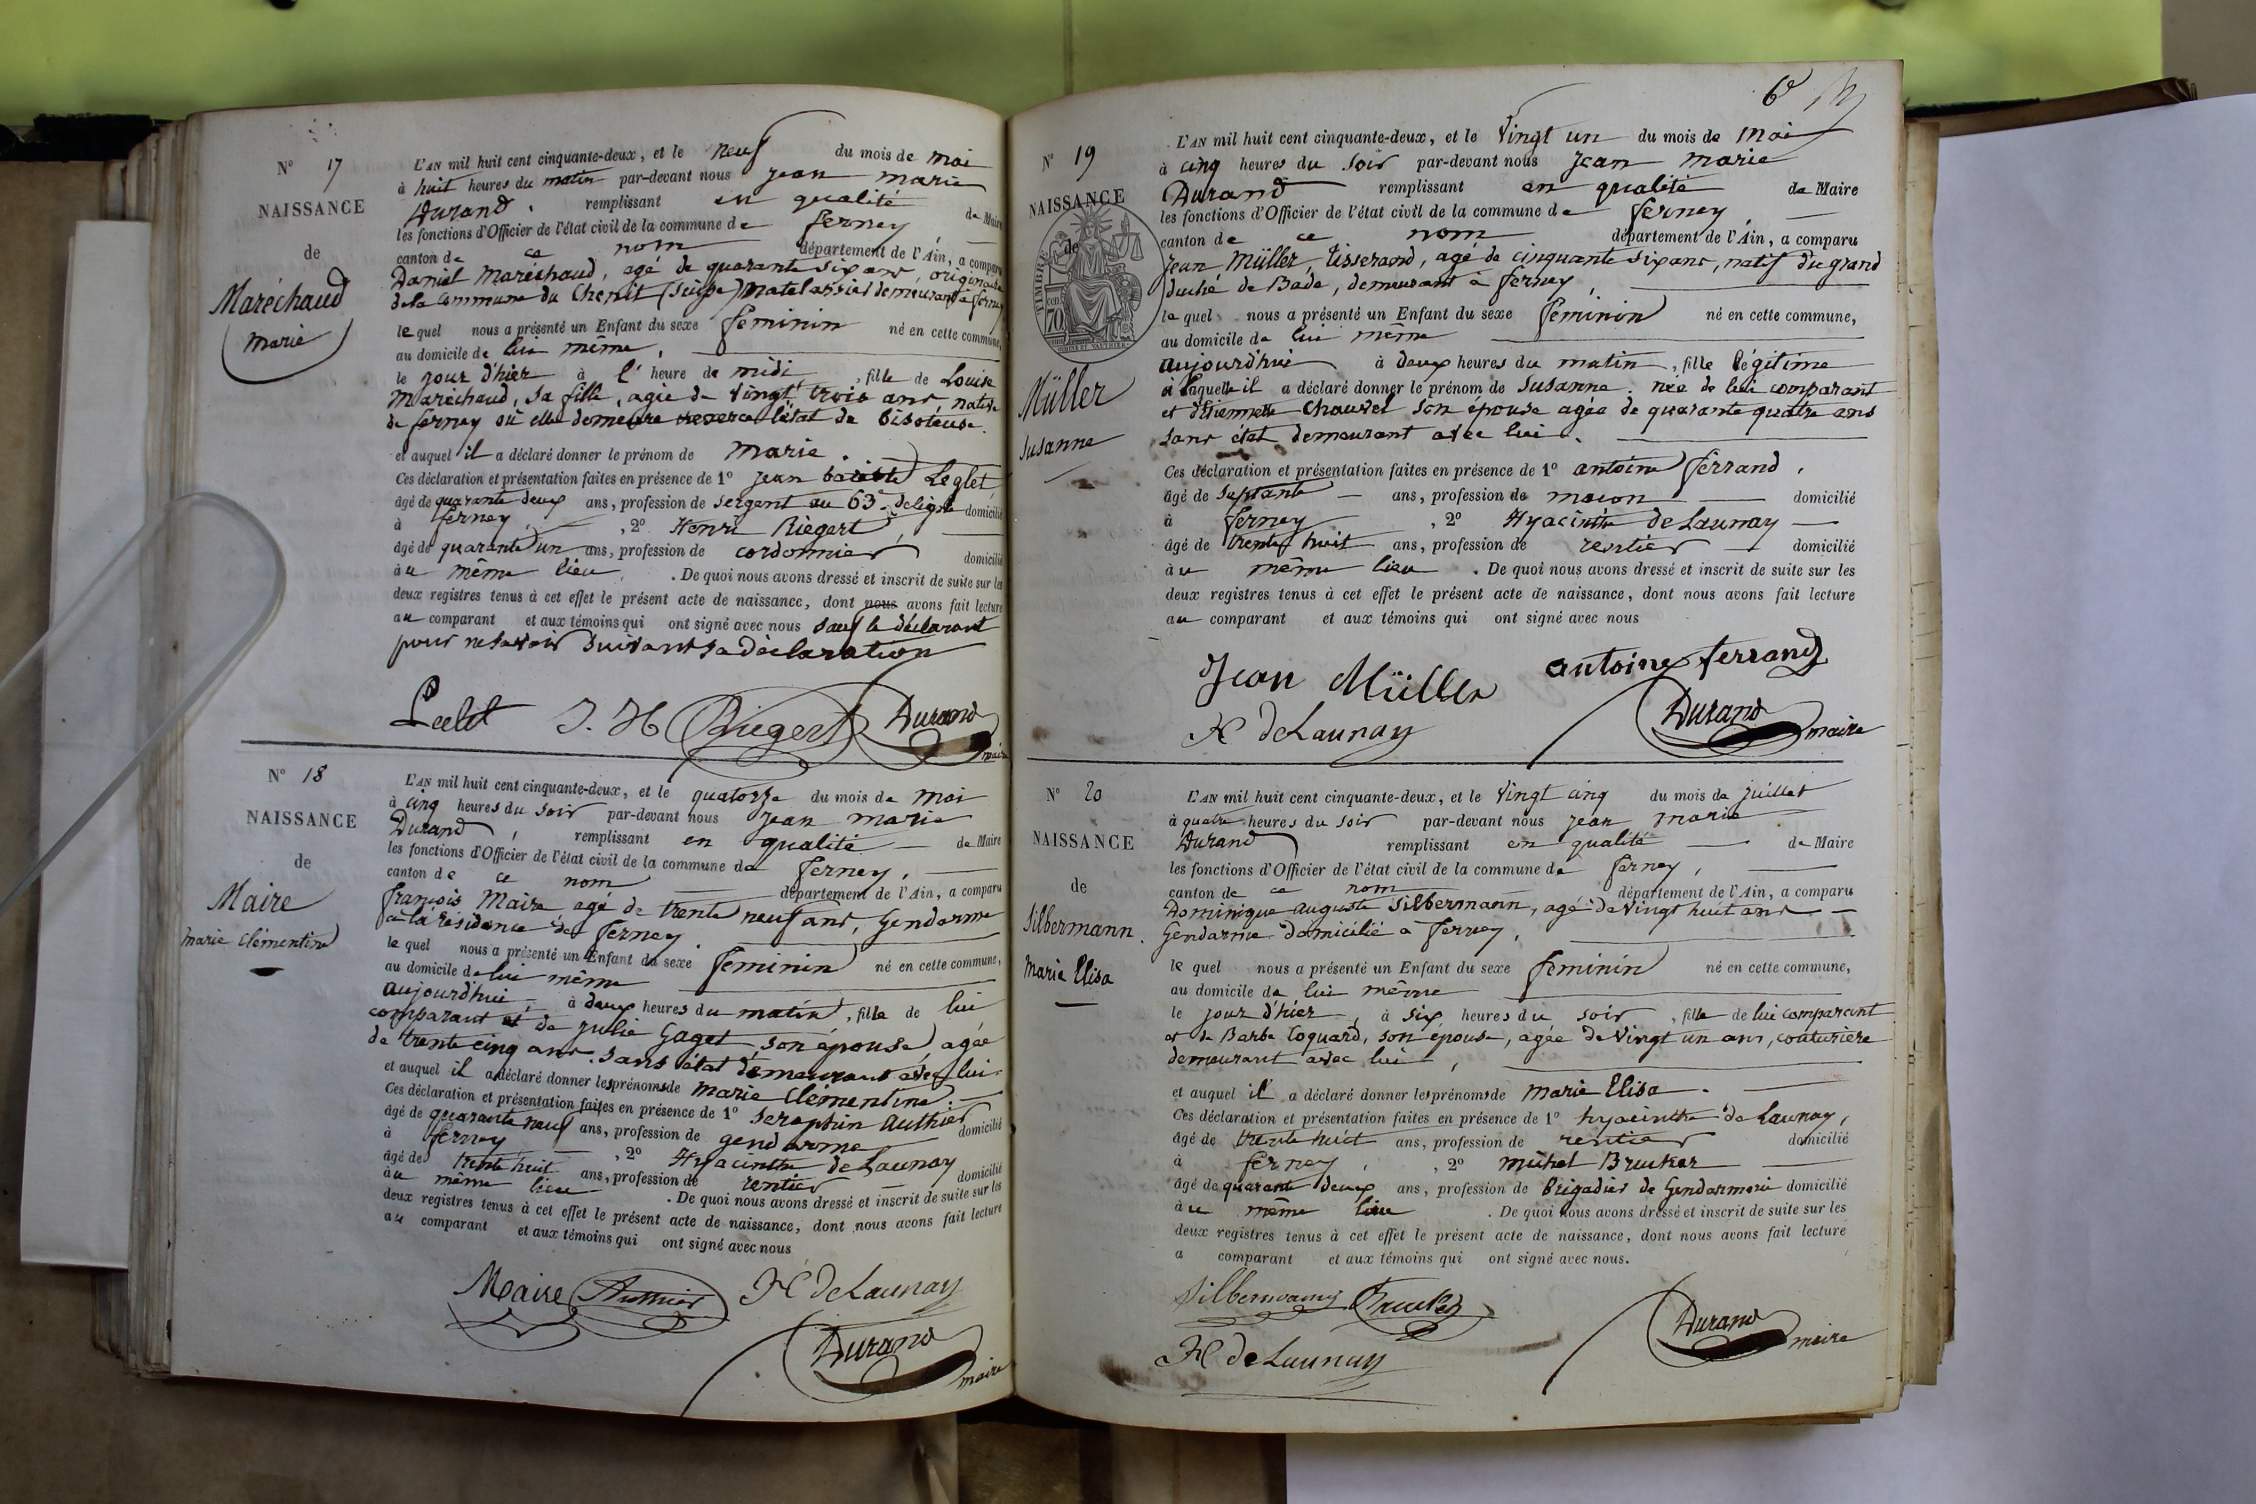 N° 17
NAISSANCE
de
Maréchaud
marie
L'AN mil huit cent cinquante-deux, et le neuf du mois de mai
à huit heures du matin par-devant nous jean marie
Durand, remplissant en qualité de Maire
les fonctions d'Officier de l'état civil de la commune de ferney,
canton de ce nom département de l'Ain, a comparu
Daniel Maréchaud, agé de quarante six ans, originaire
de la Commune du Chenit (Suisse) Matelassier demeurant à ferney
lequel nous a présenté un Enfant du sexe feminin né en cette commune,
au domicile de lui même,
le jour d'hier à l' heure de midi, fille de Louise
Maréchaud, sa fille, agée de vingt trois ans, native
de ferney où elle demeure exerce l'état de bisoteuse.
et auquel il a déclaré donner le prénom de marie.
Ces déclaration et présentation faites en présence de 1° jean batiste Leglet,
âgé de quarante deux ans, profession de sergent au 63e de ligne domicilié
à ferney, 2° Henri Riegert,
âgé de quarante un ans, profession de cordonnier domicilié
au même lieu. De quoi nous avons dressé et inscrit de suite sur les
deux registres tenus à cet effet le présent acte de naissance, dont nous avons fait lecture
au comparant et aux témoins qui ont signé avec nous sauf le déclarant
pour ne savoir suivant sa déclaration
J. H Riegert Durand
maire
N° 18
NAISSANCE
de
Maire
marie clémentine
L'AN mil huit cent cinquante-deux, et le quatorze du mois de mai
à cinq heures du soir par-devant nous jean marie
Durand, remplissant en qualité de Maire
les fonctions d'Officier de l'état civil de la commune de ferney,
canton de ce nom département de l'Ain, a comparu
françois Maire agé de trente neuf ans, Gendarme
à la résidence de ferney.
lequel nous a présenté un Enfant du sexe feminin né en cette commune,
au domicile de lui même
aujourd'hui, à deux heures du matin, fille de lui
comparant et de julie Gaget, son épouse, agée
de trente cinq ans, sans état demeurant avec lui.
et auquel il a déclaré donner les prénoms de marie Clémentine.
Ces déclaration et présentation faites en présence de 1° Seraphin Authier
âgé de quarante neuf ans, profession de gendarme domicilié
à ferney, 2° Hyacinthe de Launay
âgé de trente huit ans, profession de rentier domicilié
au même lieu. De quoi nous avons dressé et inscrit de suite sur les
deux registres tenus à cet effet le présent acte de naissance, dont nous avons fait lecture
au comparant et aux témoins qui ont signé avec nous
Maire Authier H de Launay
Durand
maire
6e
N° 19
NAISSANCE
de
TIMBRE
70
Müller
Susanne
L'AN mil huit cent cinquante-deux, et le vingt un du mois de mai
à cinq heures du soir par-devant nous jean marie
Durand remplissant en qualité de Maire
les fonctions d'Officier de l'état civil de la commune de ferney,
canton de ce nom département de l'Ain, a comparu
jean Müller, tisserand, agé de cinquante six ans, natif du grand
duché de Bade, demeurant à ferney,
lequel nous a présenté un Enfant du sexe feminin né en cette commune,
au domicile de lui même
aujourd'hui à deux heures du matin, fille légitime
à laquelle il a déclaré donner le prénom de Susanne. née de lui comparant
et d'Etiennette Chauvet son épouse agée de quarante quatre ans
sans état demeurant avec lui.
Ces déclaration et présentation faites en présence de 1° antoine ferrand,
âgé de septante ans, profession de macon domicilié
à ferney, 2° Hyacinthe de Launay
âgé de trente huit ans, profession de rentier domicilié
au même lieu. De quoi nous avons dressé et inscrit de suite sur les
deux registres tenus à cet effet le présent acte de naissance, dont nous avons fait lecture
au comparant et aux témoins qui ont signé avec nous
Jean Müller antoine ferrand
H de Launay Durand
maire
N° 20
NAISSANCE
de
Silbermann.
Marie Elisa
L'AN mil huit cent cinquante-deux, et le vingt cinq du mois de juillet
à quatre heures du soir par-devant nous jean marie
Durand remplissant en qualité de Maire
les fonctions d'Officier de l'état civil de la commune de ferney,
canton de ce nom département de l'Ain, a comparu
Dominique auguste Silbermann, agé de vingt huit ans
Gendarme domicilié à ferney,
lequel nous a présenté un Enfant du sexe feminin né en cette commune,
au domicile de lui même
le jour d'hier, à six heures du soir, fille de lui comparant
et de Barbe Coquard, son épouse, agée de vingt un ans, couturière
demeurant avec lui,
et auquel il a déclaré donner les prénoms de marie Elisa.
Ces déclaration et présentation faites en présence de 1° hyacinthe de Launay,
âgé de trente huit ans, profession de rentier domicilié
à ferney, 2° michel Brucker
âgé de quarante deux ans, profession de Brigadier de Gendarmerie domicilié
au même lieu. De quoi nous avons dressé et inscrit de suite sur les
deux registres tenus à cet effet le présent acte de naissance, dont nous avons fait lecture
a comparant et aux témoins qui ont signé avec nous.
Silbermann Brucker
H de Launay Durand
maire